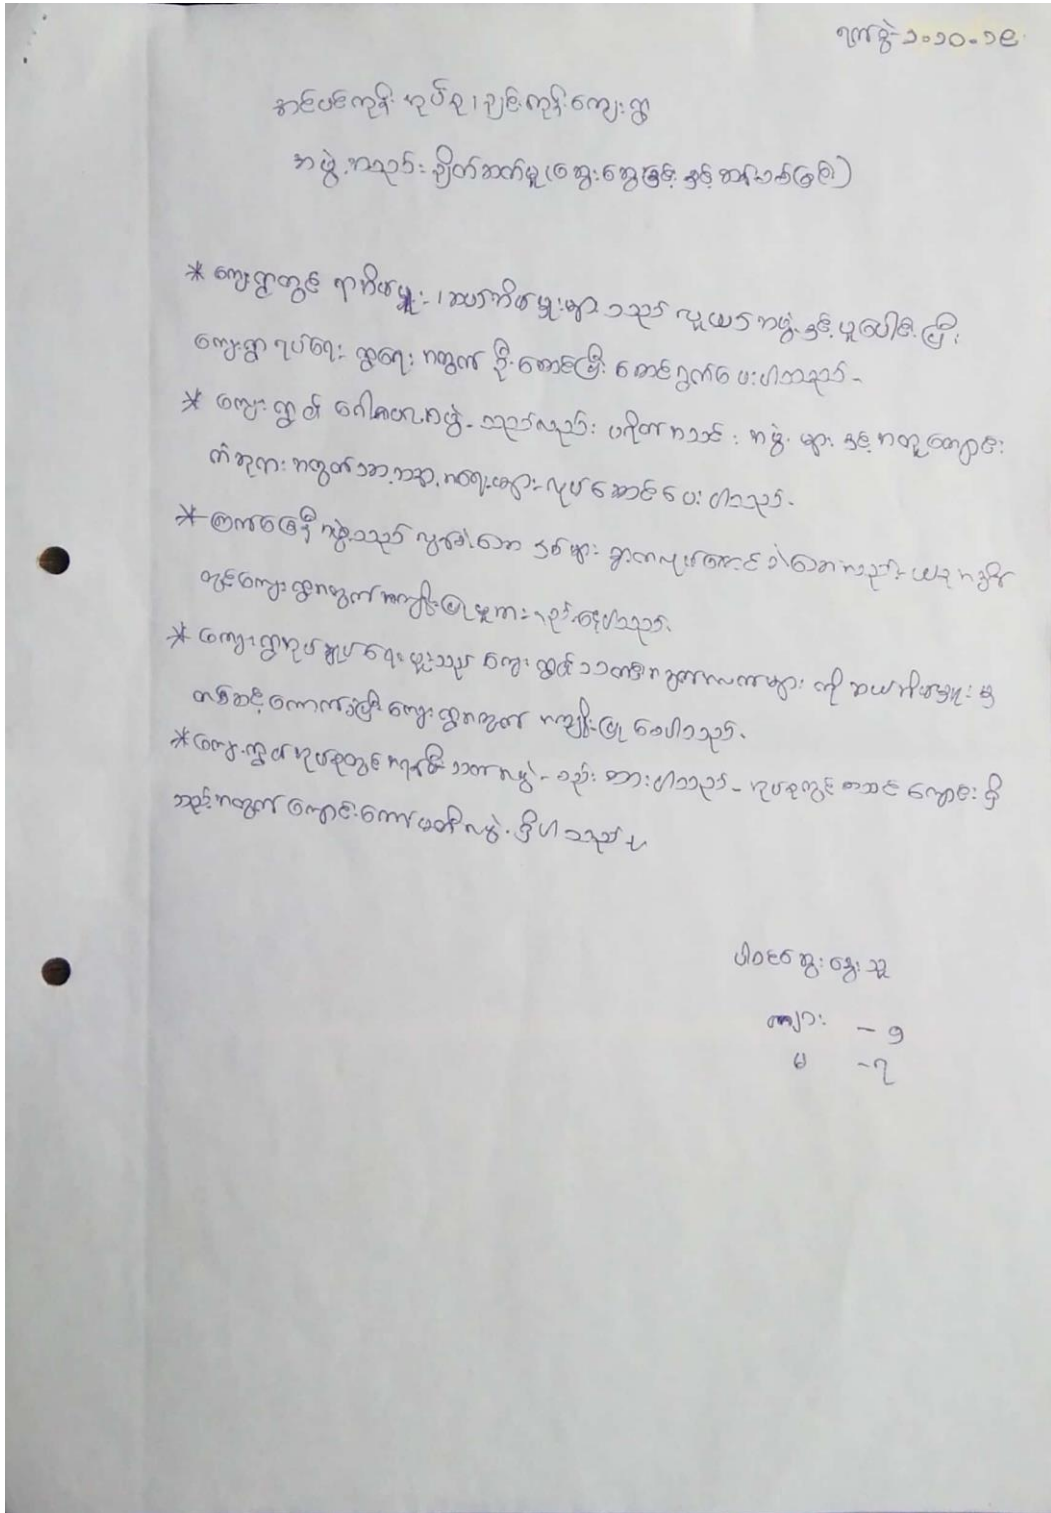 ရက်စွဲ-၁.၁၀.၁၉
အင်ပင်ကုန်း အုပ်စု၊ ညှင်းကုန်းကျေးရွာ
အဖွဲ့အစည်း ချိတ်ဆက်မှု (ဆွေးနွေးခြင်း နှင့် ဆန်းစစ်ခြင်း)
* ကျေးရွာတွင် ရာအိမ်မှူး၊ ဆယ်အိမ်မှူးများသည် လူငယ်အဖွဲ့နှင့် ပူးပေါင်းပြီး
ကျေးရွာ ရပ်ရေး ရွာရေး အတွက် ဦးဆောင်ပြီး ဆောင်ရွက်ပေးပါသည်-
* ကျေးရွာ၏ ဂေါပကအဖွဲ့သည်လည်း ပရဟိတအသင်းအဖွဲ့များနှင့်အတူကျောင်း
ကန်ဘုရားအတွက် သာရေးနာရေးများ လုပ်ဆောင်ပေးပါသည်-
* ကြက်ခြေနီအဖွဲ့သည် လွန်ခဲ့သော နှစ်များစွာက လုပ်ဆောင်ခဲ့သော်လည်း ယခုအချိန်
တွင်ကျေးရွာအတွက် အကျိုးပြုမှုအားနည်းနေပါသည်-
* ကျေးရွာအုပ်ချုပ်ရေးမှူးသည် ကျေးရွာ၏ သတင်းအချက်အလက်များ ကို ဆယ်အိမ်မှူးမှ
တစ်ဆင့်ကောက်ခံပြီး ကျေးရွာအတွက် အကျိုးပြုစေပါသည်-
* ကျေးရွာ၏အုပ်စုတွင် အရန်မီးသတ်အဖွဲ့- စည်းထားပါသည်- အုပ်စုတွင် စာသင်ကျောင်းရှိ
သည့်အတွက် ကျောင်းကော်မတီအဖွဲ့ရှိပါသည်-
ပါဝင်ဆွေးနွေးသူ
ကျား -၅
မ -၇